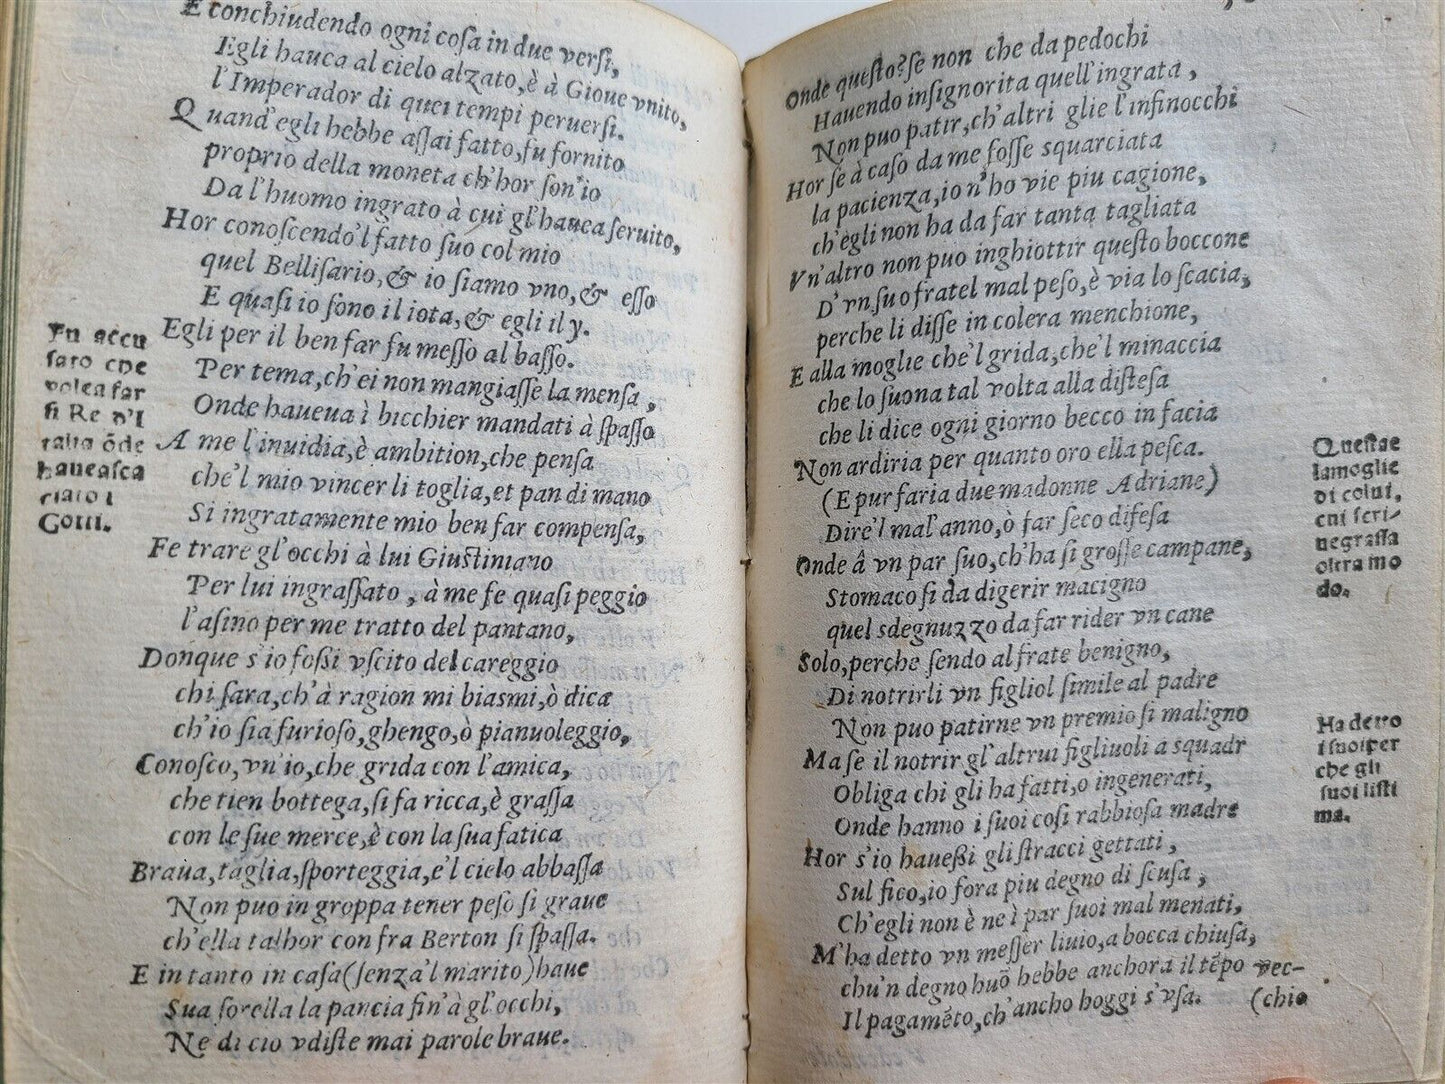 E conchiudendo ogni cosa in due versi,
Egli hauea al cielo alzato, è à Gioue vnito,
l'Imperador di quei tempi peruersi.
Quand'egli hebbe assai fatto, fu fornito
proprio della moneta ch'hor son'io
Da l'huomo ingrato à cui gl'hauea seruito,
Hor conoscendo'l fatto suo col mio
quel Bellisario, & io siamo vno, & esso
E quasi io sono il iota, & egli il y.
Egli per il ben far fu messo al basso.
Per tema, ch'ei non mangiasse la mensa,
Onde haueua i bicchier mandati à spasso
A me l'inuidia, è ambition, che pensa
che'l mio vincer li toglia, et pan di mano
Si ingratamente mio ben far compensa,
Fe trare gl'occhi à lui Giustiniano
Per lui ingrassato, à me fe quasi peggio
l'asino per me tratto del pantano,
Donque s'io fossi vscito del careggio
chi sara, ch'à ragion mi biasmi, ò dica
ch'io sia furioso, ghengo, ò pianuoleggio,
Conosco, vn'io, che grida con l'amica,
che tien bottega, si fa ricca, è grassa
con le sue merce, è con la sua fatica
Braua, taglia, sporteggia, e'l cielo abbassa
Non puo in groppa tener peso si graue
ch'ella talhor con fra Berton si spassa.
E in tanto in casa (senza'l marito) haue
Sua sorella la pancia fin'à gl'occhi,
Ne di cio vdiste mai parole braue.
Fu accu
sato che
volea far
si Re d'I
talia õde
haueasca
ciato i
Gotti.
Onde questo? se non che da pedochi
Hauendo insignorita quell'ingrata,
Non puo patir, ch'altri glie l'infinocchi
Hor se à caso da me fosse squarciata
la pacienza, io n'ho vie piu cagione,
ch'egli non ha da far tanta tagliata
Vn'altro non puo inghiottir questo boccone
D'vn suo fratel mal peso, è via lo scacia,
perche li disse in colera menchione,
E alla moglie che'l grida, che'l minaccia
che lo suona tal volta alla distesa
che li dice ogni giorno becco in facia
Non ardiria per quanto oro ella pesca.
(E pur faria due madonne Adriane)
Dire'l mal'anno, ò far seco difesa
Onde â vn par suo, ch'ha si grosse campane,
Stomaco si da digerir macigno
quel sdegnuzzo da far rider vn cane
Solo, perche sendo al frate benigno,
Di notrirli vn figliol simile al padre
Non puo patirne vn premio si maligno
Ma se il notrir gl'altrui figliuoli a squadr
Obliga chi gli ha fatti, o ingenerati,
Onde hanno i suoi cosi rabbiosa madre
Hor s'io hauessi gli stracci gettati,
Sul fico, io fora piu degno di scusa,
Ch'egli non è ne i par suoi mal menati,
M'ha detto vn messer liuio, a bocca chiusa,
chu'n degno huõ hebbe anchora il tẽpo vec-
Il pagamẽto, ch'ancho hoggi s'vsa. (chio
Questa e
lamoglie
di colui,
cui scri-
negrassa
oltra mo
do.
Ha detto
i suoi per
che gli
suoi listi
ma.